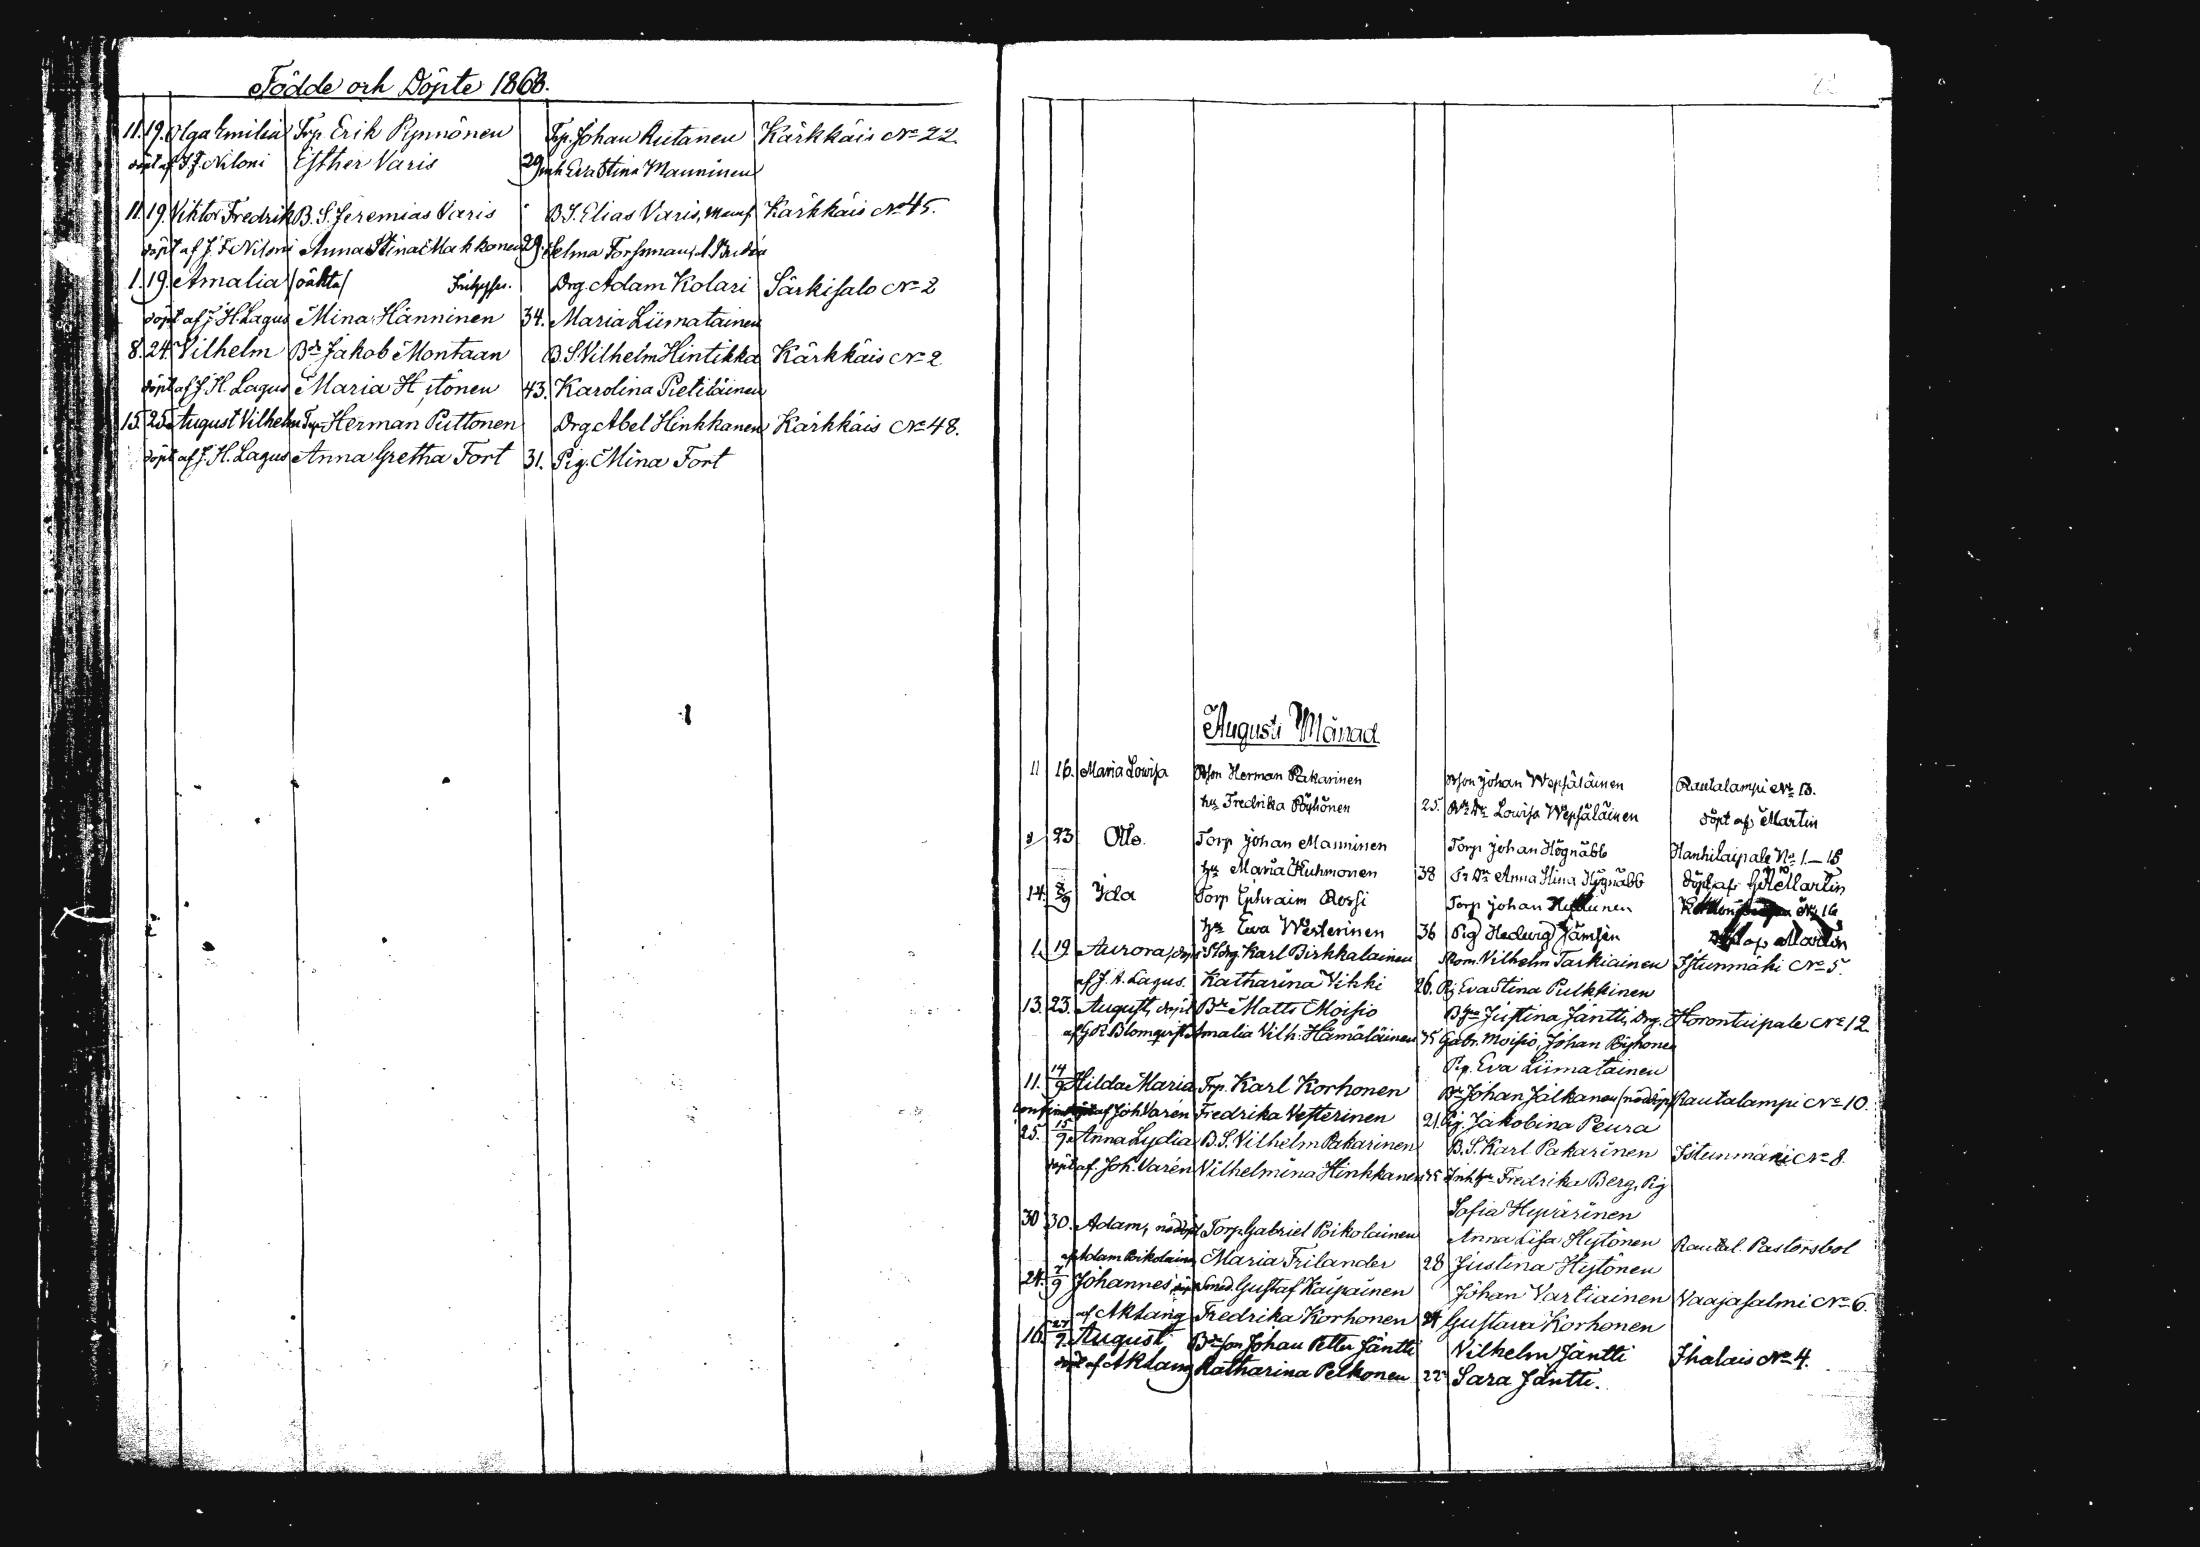 Födde och Döpte 1868.
11. 19. Olga Emilia Trp. Erik Pynnönen Trp. Johan Rutanen Kärkkäis No 22.
döpt af J. F. Niloni Esther Varis 29 Eva Stina Manninen
11. 19. Viktor Fredrik B. S. Jeremias Varis B. S. Elias Varis, Kärkkäis No 45.
döpt af J. F. Niloni Anna Stina Makkonen 29. Selma Forssman,
1. 19. Amalia /oäkta/ Drg. Adam Kolari Särkisalo No 2
döpt af J. H. Lagus Mina Hänninen 34. Maria Liimatainen
8. 24. Vilhelm Bde Jakob Montaan B. S. Vilhelm Hintikka Kärkkäis No 2
döpt af J. H. Lagus Maria Hytönen 43. Karolina Pietiläinen
15. 25. August Vilhelm Trp. Herman Puttonen Drg Abel Hinkkanen Kärkkäis No 48.
döpt af J. H. Lagus Anna Gretha Fort 31. Pig. Mina Fort
Augusti Månad
11 16. Maria Lowisa Bson Herman Pakarinen Bson Johan Wepsäläinen Rautalampi No 13.
hu Fredrika Pöyhönen 25. Lowisa Wepsäläinen döpt af Martin
23 Otto. Torp Johan Manninen Torp Johan Högnäbb Hanhitaipale No 1.–18
hu Maria Kuhmonen 38 Anna Stina Högnäbb döpt af Martin
14. 8/9 Ida Torp Ephraim Rossi Torp Johan No 16
hu Ewa Westerinen 36 Pig Hedwig Jämsén döpt af Martin
1. 19 Aurora, döpt Karl Pirkkalainen Skom. Vilhelm Tarkiainen Istunmäki No 5.
af J. H. Lagus. Katharina Vihki 26. Pig Eva Stina Pulkkinen
13. 23. August, döpt Bde Matts Moisio Justina Jäntti, Drg. Horontaipale No 12
af G R Blomqvist Amalia Vilh. Hämäläinen 35 Gabr. Moisio, Johan Pöyhönen
Pig. Eva Liimatainen
11. 14/9 Hilda Maria Trp. Karl Korhonen Bde Johan Jalkanen (nöddöpt) Rautalampi No 10.
af Joh. Varén Fredrika Vesterinen 21. Pig. Jakobina Peura
25. 15/9 Anna Lydia B. S. Vilhelm Pakarinen B. S. Karl Pakarinen Istunmäki No 8.
döpt af. Joh. Varén Vilhelmina Hinkkanen 35 Fredrika Berg, Pig
Sofia Hyvärinen
30 30. Adam, nöddöpt Torp. Gabriel Poikolainen Anna Lisa Hytönen Rautal. Pastorsbol
af Adam Poikolainen Maria Frilander 28 Justina Hytönen
24. 7/9 Johannes Smed. Gustaf Kaipainen Johan Vartiainen Vaajasalmi No 6.
af A K Lang Fredrika Korhonen 24 Gustava Korhonen
16. 27/9 August Bdeson Johan Petter Jäntti Vilhelm Jäntti Ihalais No 4.
döpt af A K Lang Katharina Pelkonen 22 Sara Jäntti.